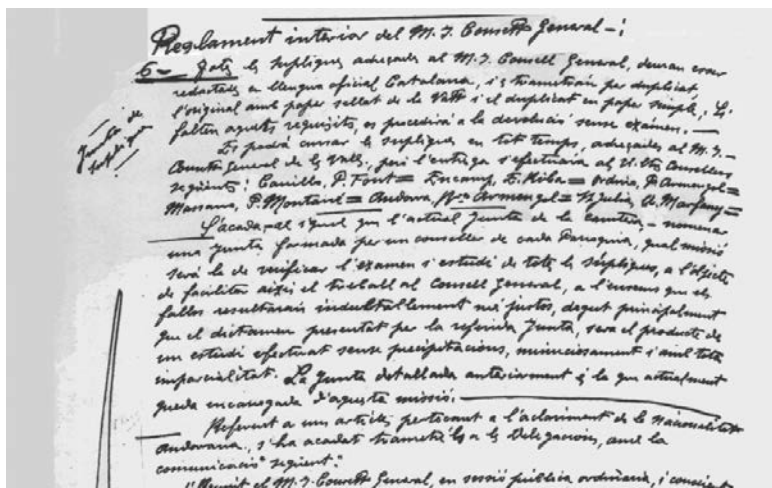 Reglament interior del M. I. Consell General -:
6- Totes les supliques adreçades al M. I. Consell General, deuran esser
redactades en llengua oficial Catalana, i es trametràn per duplicat
l'original amb paper sellat de la Vall i el duplicat en paper simple, Si
falten aquets requisits, es procedirà a la devolució sense exámen. —
Es podrà cursar les supliques en tot temps, adreçades al M. I. -
Consell General de les Valls, però l'entrega s'efectuarà als Sts Consellers
següents: Canillo, P. Font = Encamp, E. Riba = Ordino, P. Armengol =
Massana, P. Montané = Andorra, Armengol = St Julià, Marfany =
S'acada al igual que l'actual Junta de la Carretera - nomenar
una Junta formada per un conseller de cada Parroquia, qual missió
serà la de verificar l'examen i estudi de totes les súpliques, a l'objecte
de facilitar aixis el treball al Consell General, a l'ensems que els
fallos resultaràn indubtablement més justos, degut principalment
que el dictamen presentat per la referida Junta, serà el producte de
un estudi efectuat sense precipitacions, minuciosament i amb tota
imparcialitat. La Junta detallada anteriorment és la que actualment
queda encarregada d'aquesta missió. —
Referent a uns articles pertocant a l'aclariment de la Nacionalitat
Andorrana, s'ha acadat trametre'ls a les Delegacions, amb la
comunicació següent:"
Reunit el M. I. Consell General, en sessió pública ordinaria, i conscient
Junta de
supliques